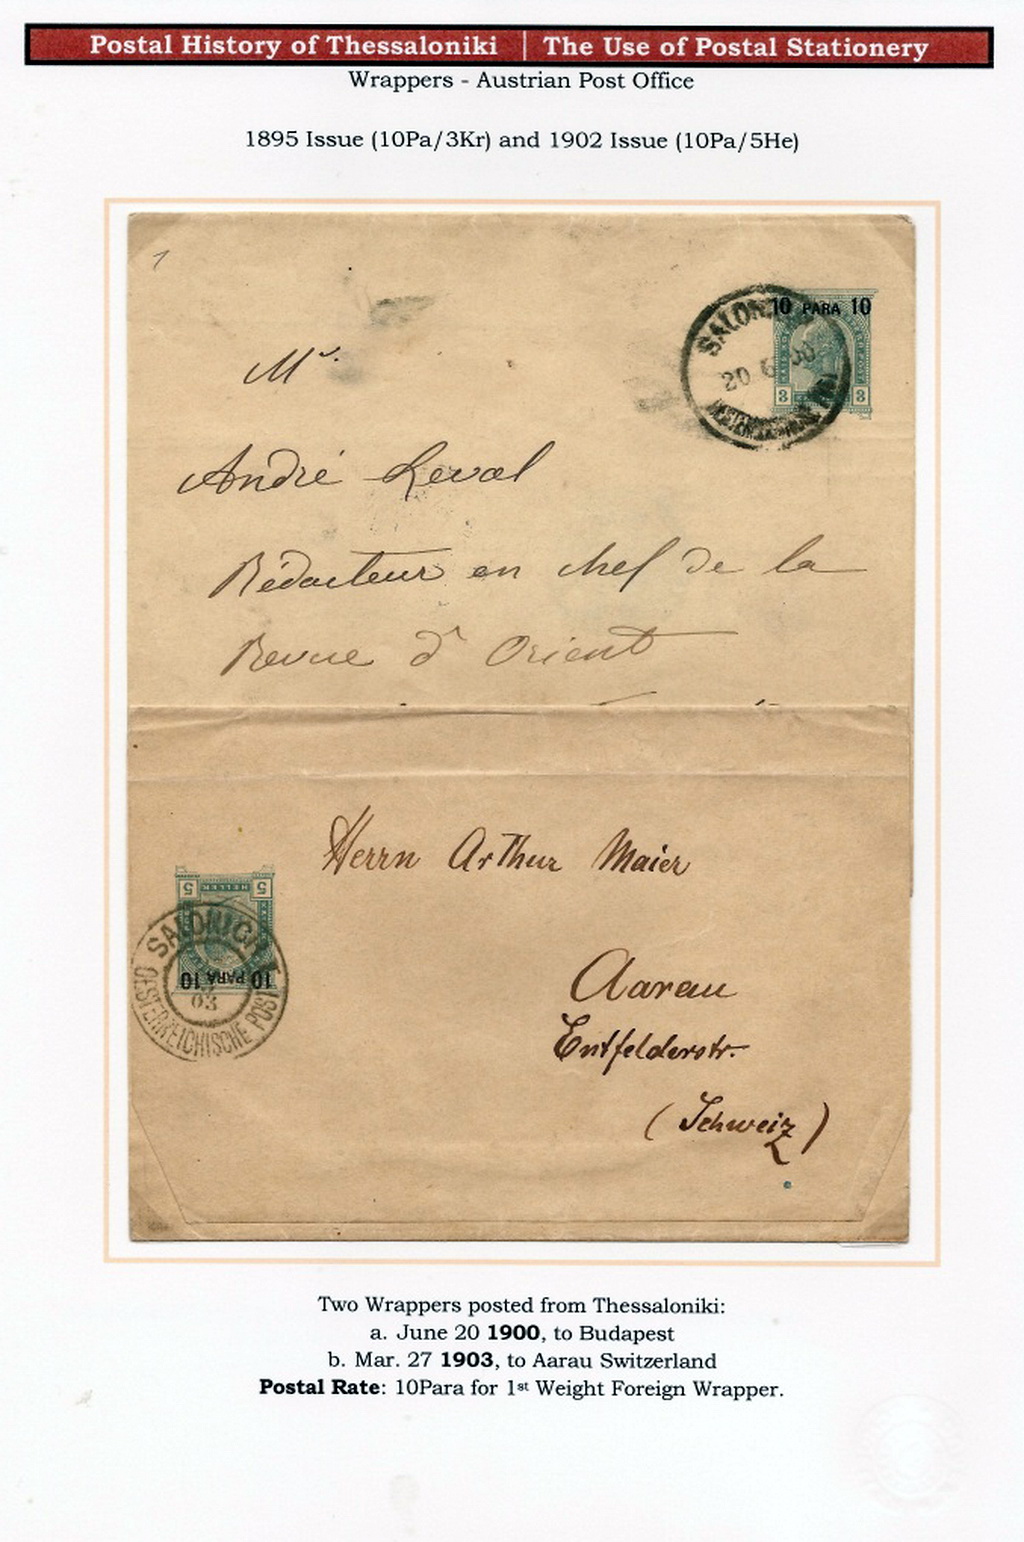 Postal History of Thessaloniki | The Use of Postal Stationery
Wrappers - Austrian Post Office
1895 Issue (10Pa/3Kr) and 1902 Issue (10Pa/5He)
1
10 PARA 10
SALON
20 6 00
3 3
Mr.
André Leval
Rédacteur en chef de la
Revue d'Orient
Herrn Arthur Maier
5 HELLER 5
SALONICH
10 PARA 10
03
OESTERREICHISCHE POST
Aarau
Entfelderstr.
(Schweiz)
Two Wrappers posted from Thessaloniki:
a. June 20 1900, to Budapest
b. Mar. 27 1903, to Aarau Switzerland
Postal Rate: 10Para for 1st Weight Foreign Wrapper.